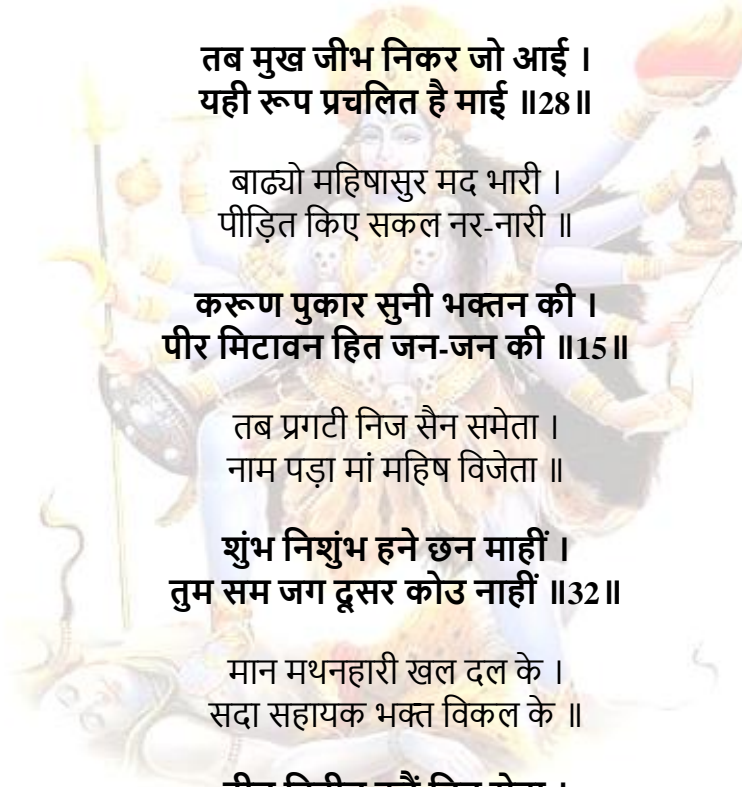 तब मुख जीभ निकर जो आई ।
यही रूप प्रचलित है माई ॥28॥
बाढ्यो महिषासुर मद भारी ।
पीड़ित किए सकल नर-नारी ॥
करूण पुकार सुनी भक्तन की ।
पीर मिटावन हित जन-जन की ॥15॥
तब प्रगटी निज सैन समेता ।
नाम पड़ा मां महिष विजेता ॥
शुंभ निशुंभ हने छन माहीं ।
तुम सम जग दूसर कोउ नाहीं ॥32॥
मान मथनहारी खल दल के ।
सदा सहायक भक्त विकल के ॥